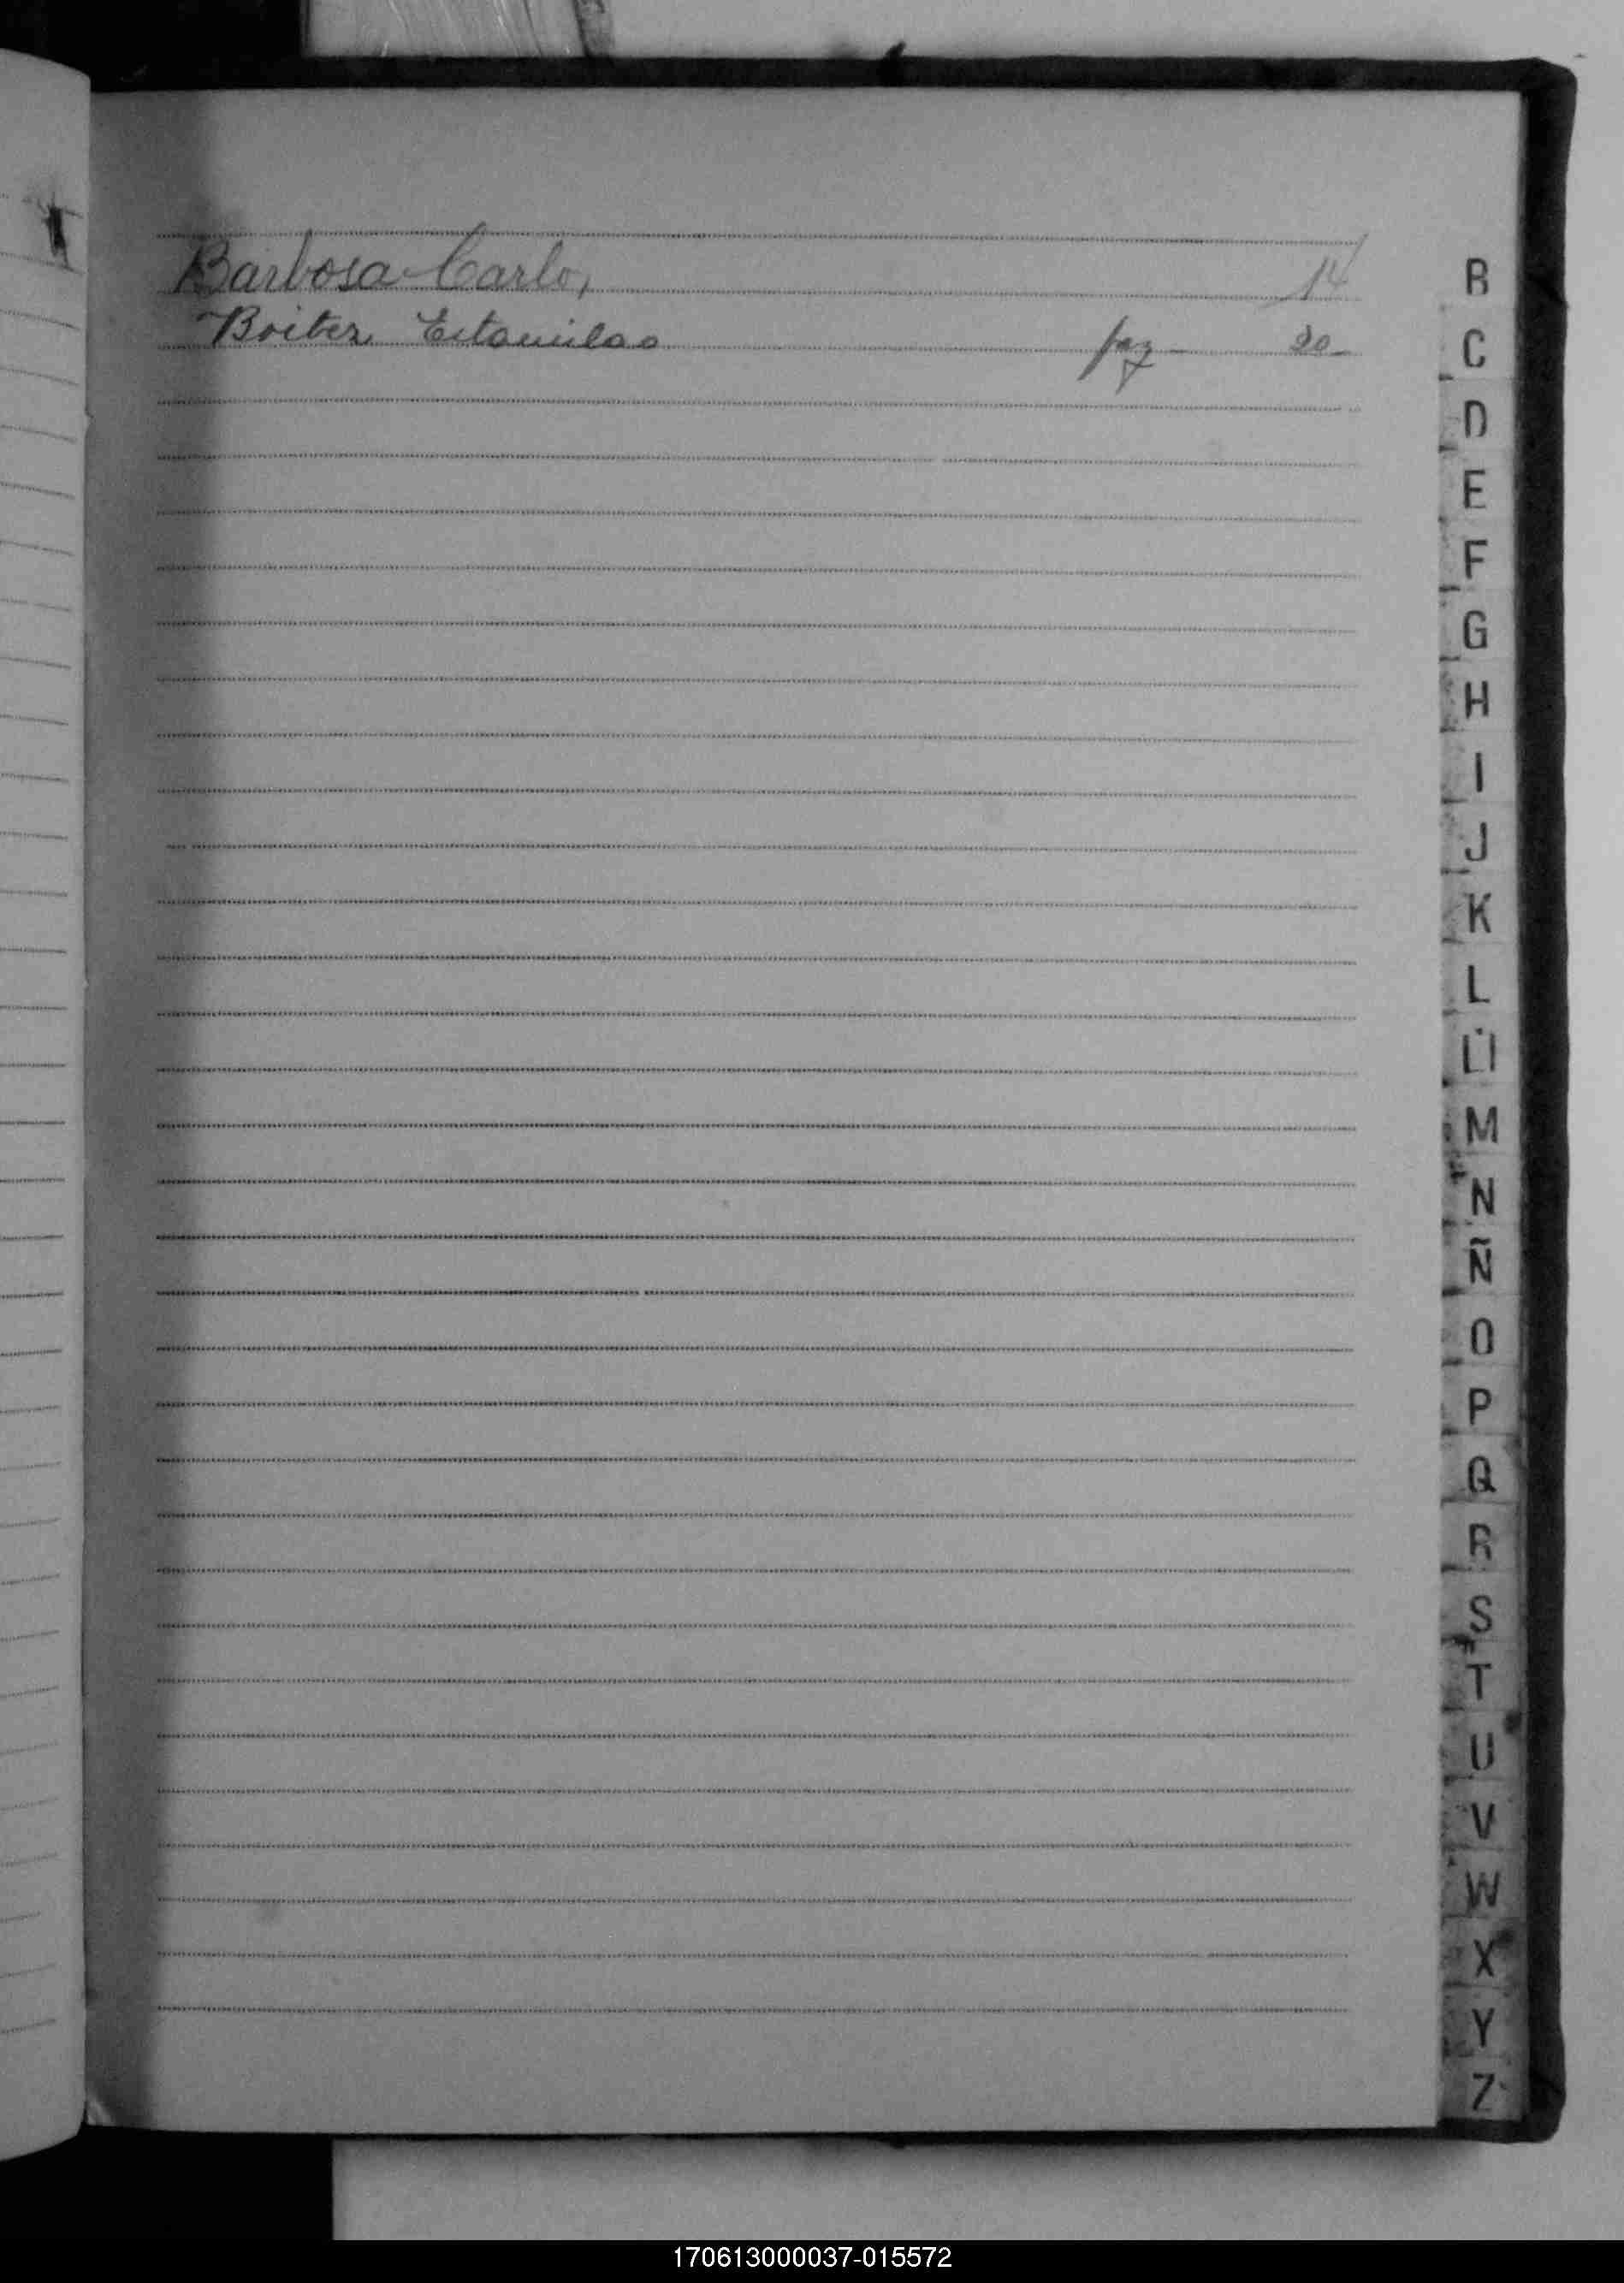 Barbosa Carlos 14
Boiber Estanislao pag 20
B
C
D
E
F
G
H
I
J
K
L
Ll
M
N
Ñ
O
P
Q
R
S
T
U
V
W
X
Y
Z
170613000037-015572